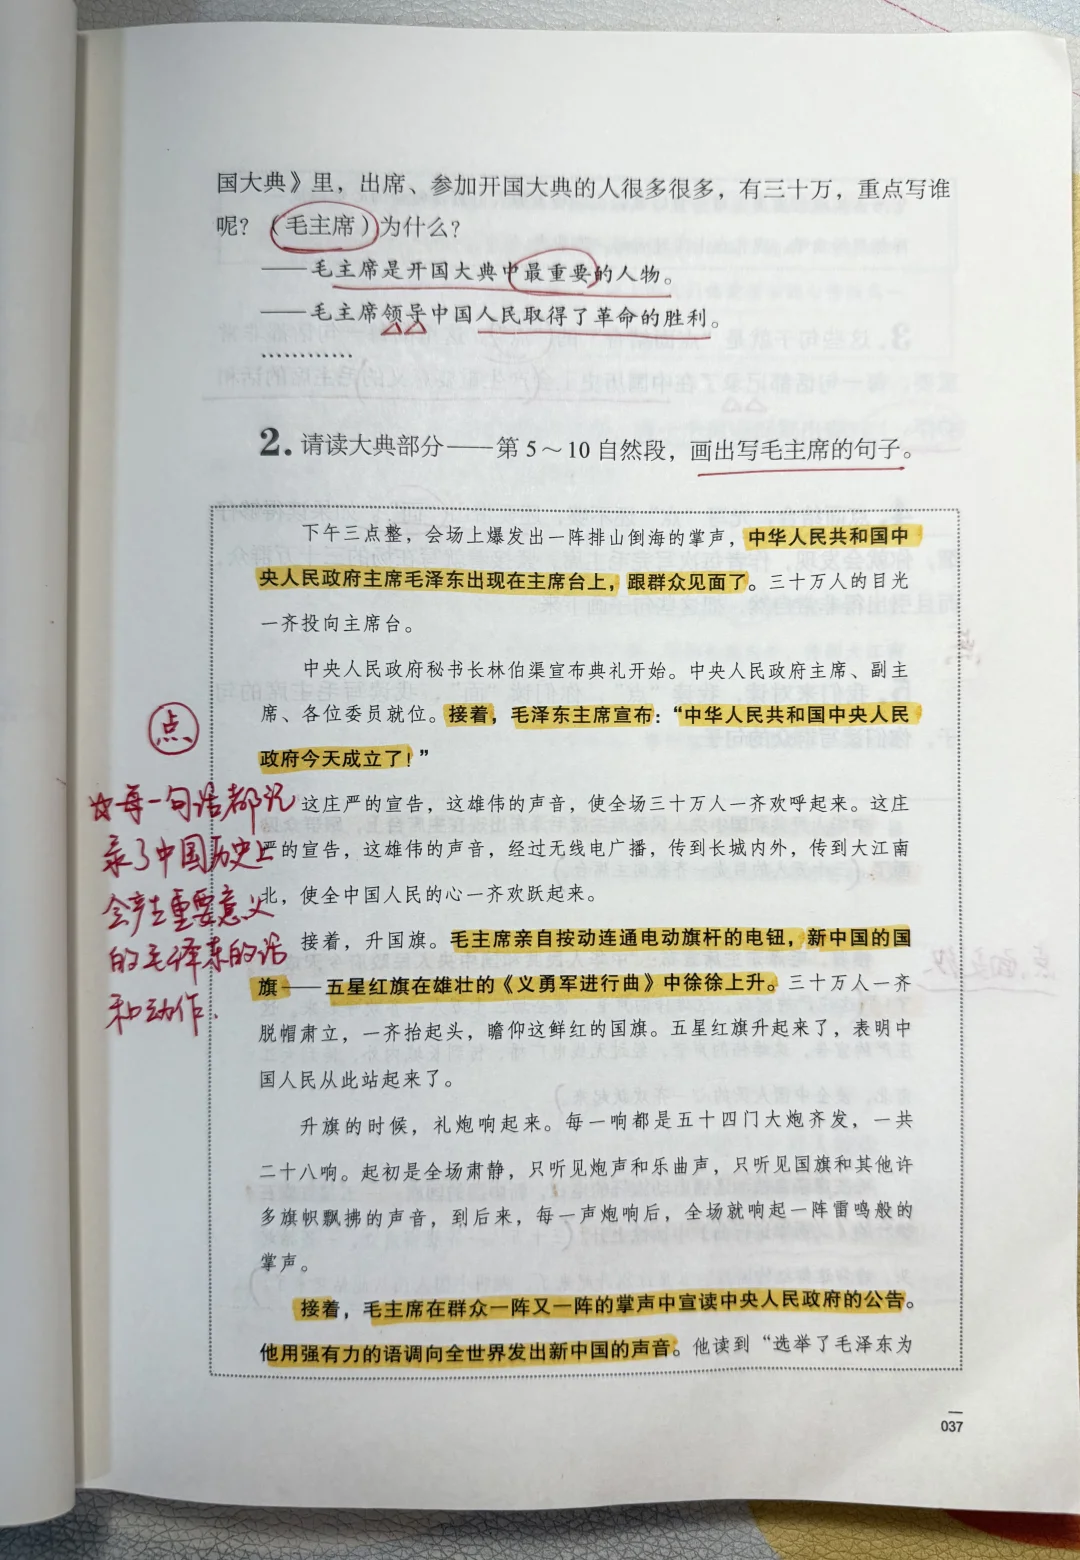 国大典》里，出席、参加开国大典的人很多很多，有三十万，重点写谁
呢？（毛主席）为什么？
——毛主席是开国大典中最重要的人物。
——毛主席领导中国人民取得了革命的胜利。
…………
2. 请读大典部分——第5～10自然段，画出写毛主席的句子。
下午三点整，会场上爆发出一阵排山倒海的掌声，中华人民共和国中
央人民政府主席毛泽东出现在主席台上，跟群众见面了。三十万人的目光
一齐投向主席台。
中央人民政府秘书长林伯渠宣布典礼开始。中央人民政府主席、副主
席、各位委员就位。接着，毛泽东主席宣布：“中华人民共和国中央人民
政府今天成立了！”
这庄严的宣告，这雄伟的声音，使全场三十万人一齐欢呼起来。这庄
严的宣告，这雄伟的声音，经过无线电广播，传到长城内外，传到大江南
北，使全中国人民的心一齐欢跃起来。
接着，升国旗。毛主席亲自按动连通电动旗杆的电钮，新中国的国
旗——五星红旗在雄壮的《义勇军进行曲》中徐徐上升。三十万人一齐
脱帽肃立，一齐抬起头，瞻仰这鲜红的国旗。五星红旗升起来了，表明中
国人民从此站起来了。
升旗的时候，礼炮响起来。每一响都是五十四门大炮齐发，一共
二十八响。起初是全场肃静，只听见炮声和乐曲声，只听见国旗和其他许
多旗帜飘拂的声音，到后来，每一声炮响后，全场就响起一阵雷鸣般的
掌声。
接着，毛主席在群众一阵又一阵的掌声中宣读中央人民政府的公告。
他用强有力的语调向全世界发出新中国的声音。他读到“选举了毛泽东为
点
☆每一句话都记
录了中国历史上
会产生重要意义
的毛泽东的话
和动作.
037